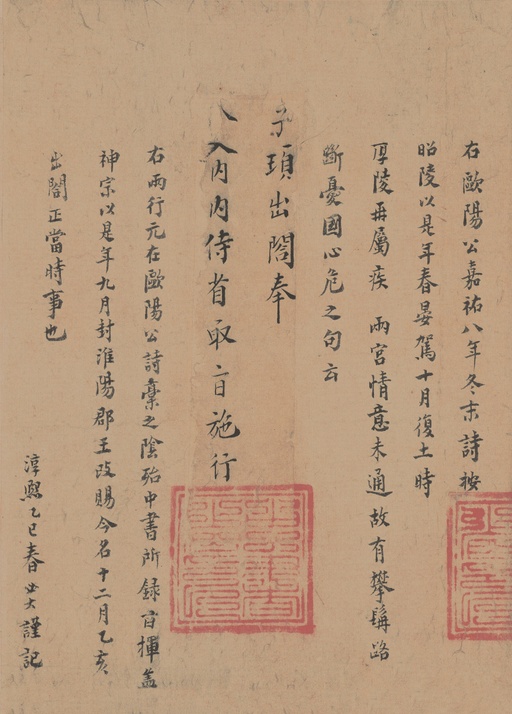 右歐陽公嘉祐八年冬末詩按
昭陵以是年春晏駕十月復土時
厚陵再屬疾 兩宮情意未通故有攀髯路
斷憂國心危之句云
頊出閤奉
入內內侍省取旨施行
右兩行元在歐陽公詩稾之陰殆中書所錄旨揮蓋
神宗以是年九月封淮陽郡王改賜今名十二月乙亥
出閤正當時事也
淳熙乙巳春必大謹記